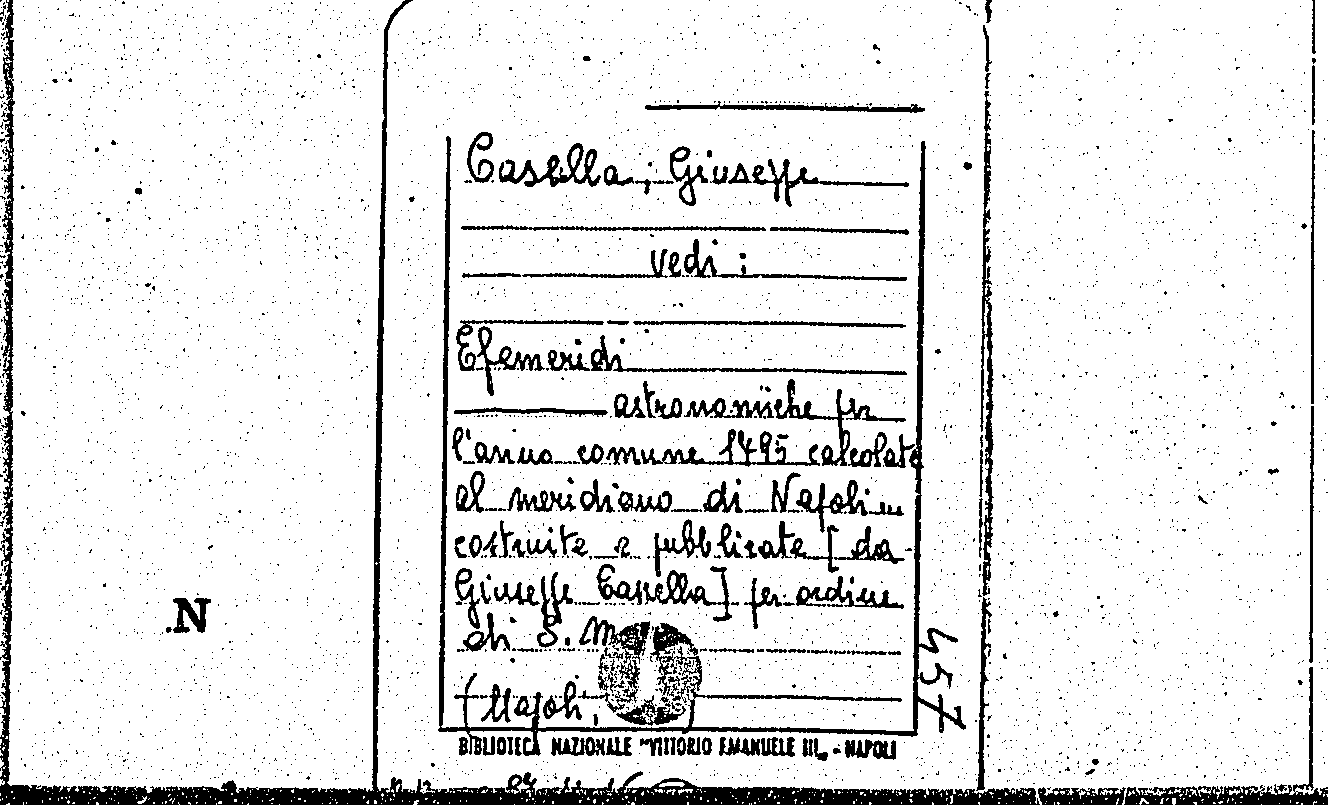 Casella, Giuseppe
vedi :
Efemeridi
astronomiche per
l'anno comune 1495 calcolate
al meridiano di Napoli
costruite e pubblicate [ da
Giuseppe Cassella ] per ordine
di S. M.
(Napoli,
BIBLIOTECA NAZIONALE "VITTORIO EMANUELE III„ - NAPOLI
N
457